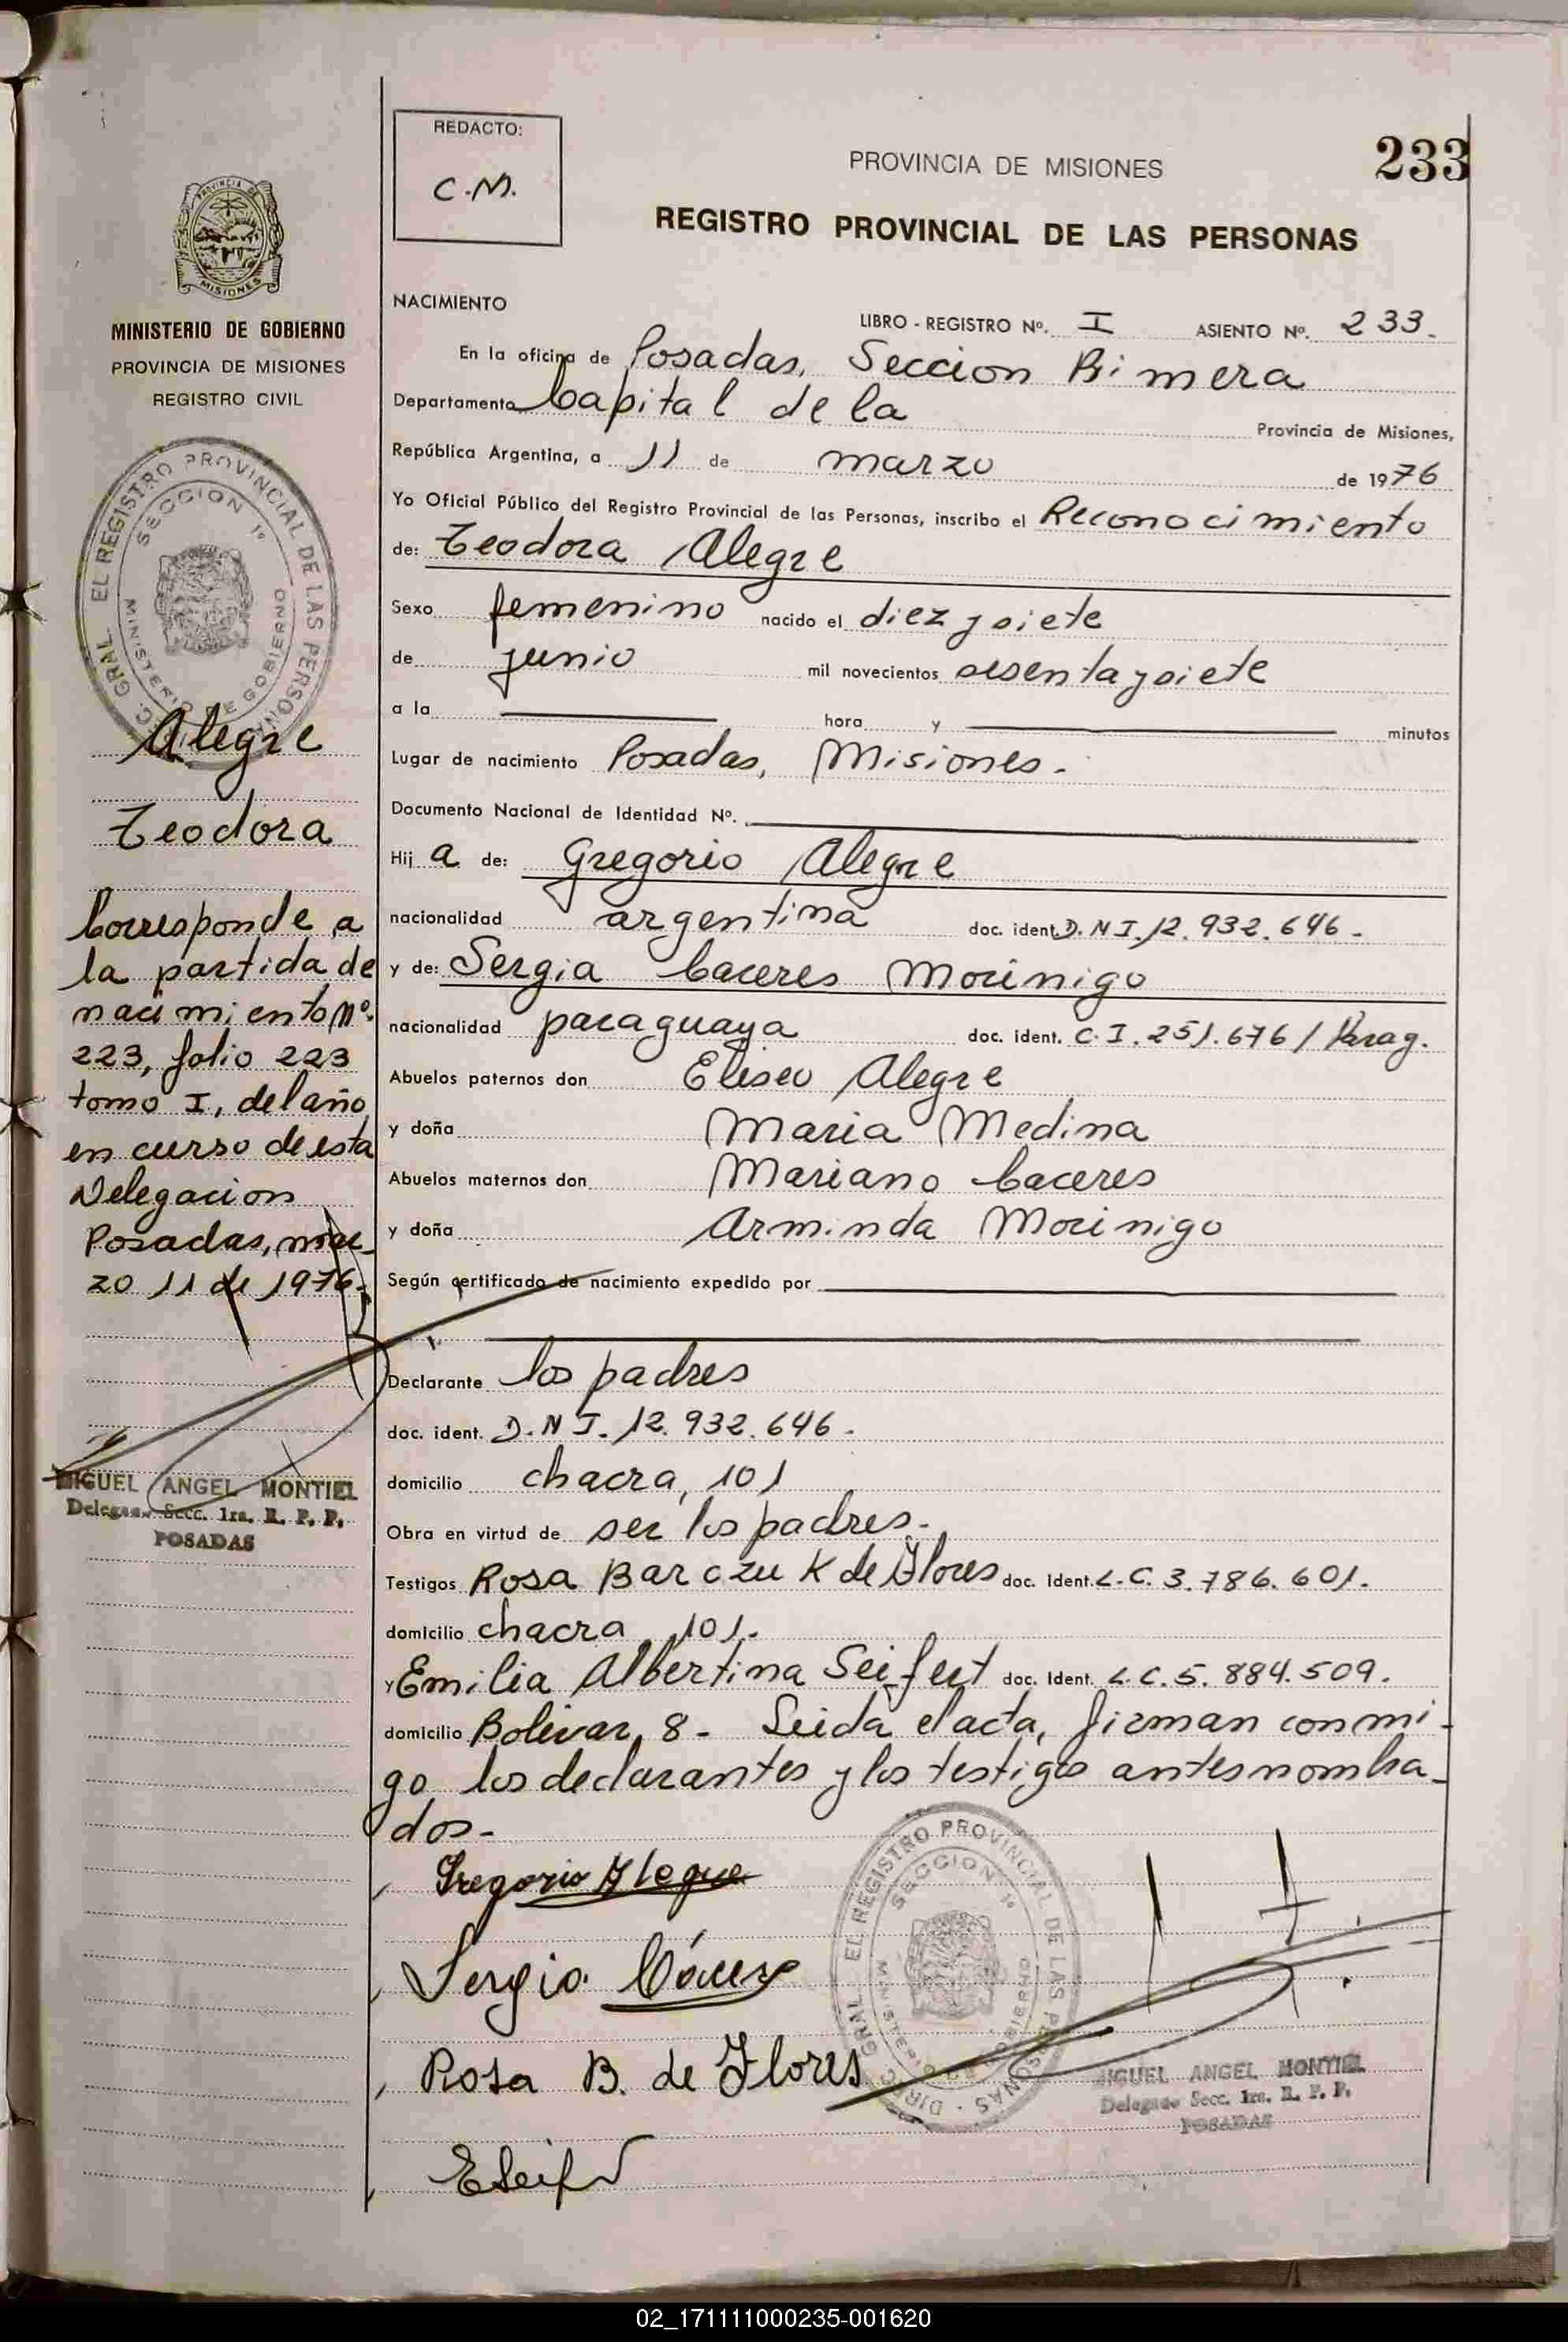 REDACTO:
C.M.
PROVINCIA DE MISIONES
233
REGISTRO PROVINCIAL DE LAS PERSONAS
PROVINCIA DE MISIONES
MINISTERIO DE GOBIERNO
PROVINCIA DE MISIONES
REGISTRO CIVIL
DIREC. GRAL. EL REGISTRO PROVINCIAL DE LAS PERSONAS
SECCION 1ª
MINISTERIO DE GOBIERNO
Alegre
Teodora
Corresponde a
la partida de
nacimiento Nº.
223, folio 223
tomo I, del año
en curso de esta
Delegacion
Posadas, mar-
zo 11 de 1976.
MIGUEL ANGEL MONTIEL
Delegado Secc. 1ra. R. P. P.
POSADAS
NACIMIENTO
LIBRO - REGISTRO Nº. I ASIENTO Nº. 233.
En la oficina de Posadas, Seccion Primera
Departamento Capital de la Provincia de Misiones,
República Argentina, a 11 de marzo de 1976
Yo Oficial Público del Registro Provincial de las Personas, inscribo el Reconocimiento
de: Teodora Alegre
Sexo femenino nacido el diez y siete
de junio mil novecientos sesenta y siete
a la hora y minutos
Lugar de nacimiento Posadas, Misiones.
Documento Nacional de Identidad Nº.
Hij a de: Gregorio Alegre
nacionalidad argentina doc. ident. D.N.I. 12.932.646.
y de: Sergia Caceres Morinigo
nacionalidad paraguaya doc. ident. C.I. 251.676 / Parag.
Abuelos paternos don Eliseo Alegre
y doña Maria Medina
Abuelos maternos don Mariano Caceres
y doña Arminda Morinigo
Según certificado de nacimiento expedido por
Declarante los padres
doc. ident. D.N.I. 12.932.646.
domicilio chacra, 101
Obra en virtud de ser los padres.
Testigos Rosa Barczu K de Flores doc. Ident. L.C. 3.786.601.
domicilio chacra 101.
y Emilia Albertina Seifert doc. Ident. L.C. 5.884.509.
domicilio Bolivar, 8- Leida el acta, firman conmi-
go los declarantes y los testigos antes nombra-
dos-
Gregorio Alegre
Sergia Cáceres
Rosa B. de Flores
ESeif
DIREC. GRAL. EL REGISTRO PROVINCIAL DE LAS PERSONAS
SECCION 1ª
MINISTERIO DE GOBIERNO
MIGUEL ANGEL MONTIEL
Delegado Secc. 1ra. R. P. P.
POSADAS
02_171111000235-001620